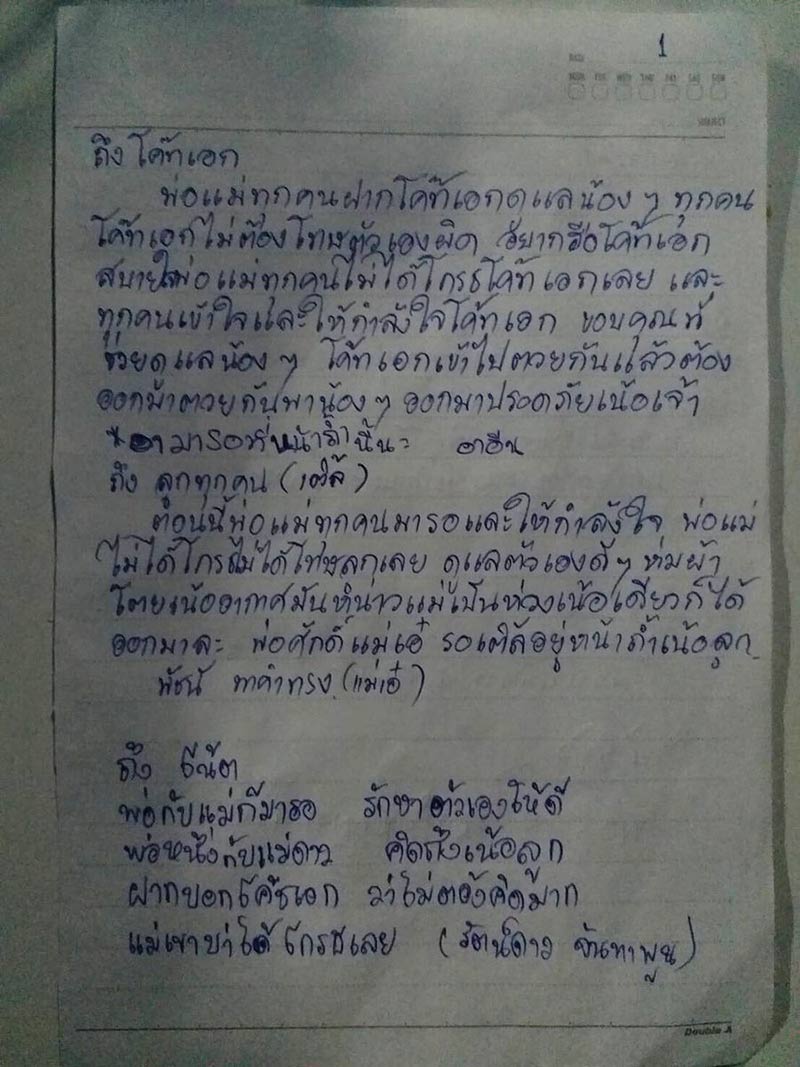 1
DATE
MON TUE WED THU FRI SAT SUN
ถึง โค๊ทเอก
พ่อแม่ทุกคนฝากโค๊ทเอกดูแลน้อง ๆ ทุกคน
โค๊ทเอกไม่ต้องโทษตัวเองผิด อยากฮือโค๊ทเอก
สบายใจพ่อแม่ทุกคนไม่ได้โกรธโค๊ทเอกเลย และ
ทุกคนเข้าใจและให้กำลังใจโค๊ทเอก ขอบคุณที่
ช่วยดูแลน้อง ๆ โค๊ทเอกเข้าไปตวยกันแล้วต้อง
ออกมาตวยกันพาน้อง ๆ ออกมาปรอดภัยเน้อเจ้า
*อามารอที่หน้าถ้ำนี้นะ อาอืน
ถึง ลูกทุกคน (เติ้ล)
ตอนนี้พ่อแม่ทุกคนมารอและให้กำลังใจ พ่อแม่
ไม่ได้โกรธไม่ได้โทษลูกเลย ดูแลตัวเองดี ๆ ห่มผ้า
โตยเน้ออากาศมันหนาวแม่เป็นห่วงเน้อเดียวก็ได้
ออกมาละ พ่อศักดิ์แม่เอ๋ รอเติ้ลอยู่หน้าถ้ำเน้อลูก
พัชนี ทาคำทรง (แม่เอ๋)
ถึง ธีน๊ต
พ่อกับแม่ก็มารอ รักษาตัวเองให้ดี
พ่อหนึ่งกับแม่ดาว คิดถึงเน้อลูก
ฝากบอกโค๊ชเอก ว่าไม่ต้องคิดมาก
แม่เขาบ่าได้โกรธเลย (รัตน์ดาว จันทาพูน)
Double A